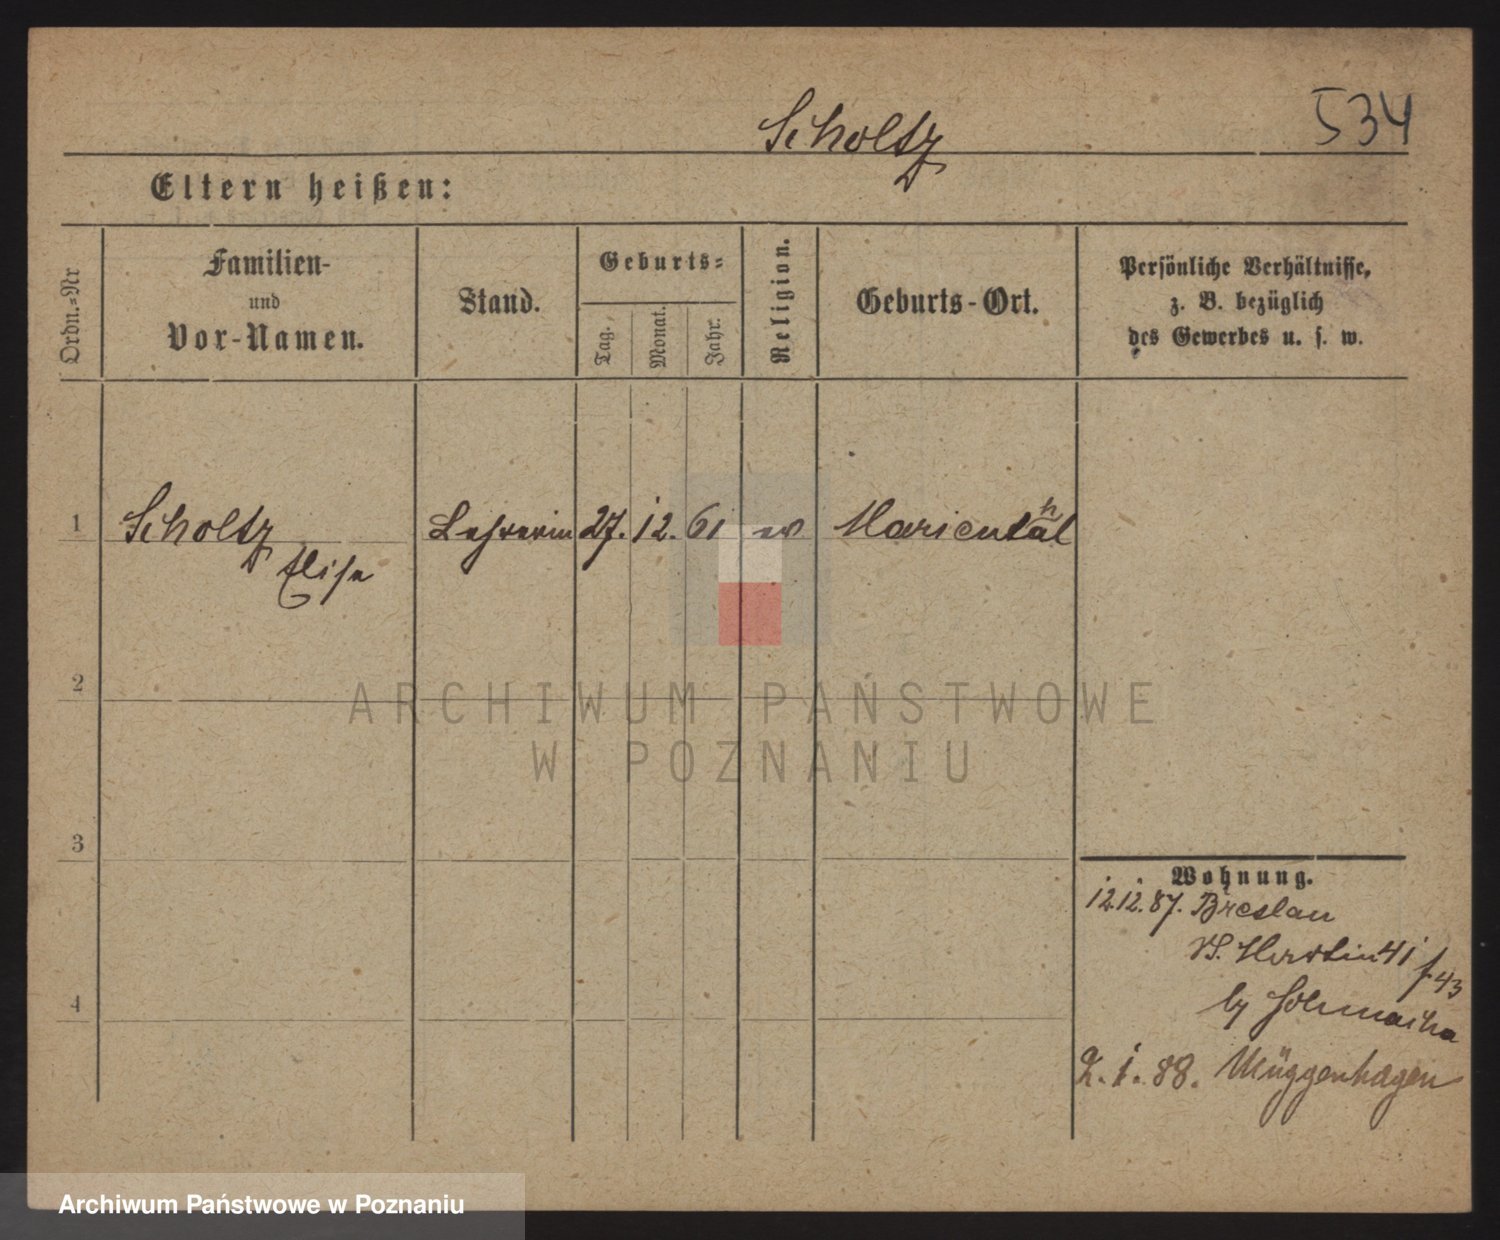 534
Scholtz
Eltern heißen:
Ordn.=Nr
Familien-
und
Vor-Namen.
Stand.
Geburts=
Tag.
Monat.
Jahr.
Religion.
Geburts-Ort.
Persönliche Verhältnisse,
z. B. bezüglich
des Gewerbes u. s. w.
1 Scholtz Lehrerin 27. 12. 61 ev Mariental
h
Elise
2
ARCHIWUM PAŃSTWOWE
W POZNANIU
3
Wohnung.
12.12.87. Breslau
41
f 43
4
2. 1. 88. Müggenhagen
Archiwum Państwowe w Poznaniu